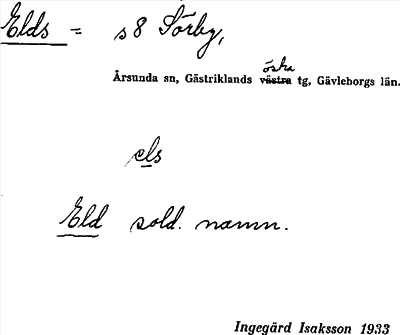 Elds = s 8 Sörby,
östra
Årsunda sn, Gästriklands västra tg, Gävleborgs län.
els
Eld sold. namn.
Ingegärd Isaksson 1933